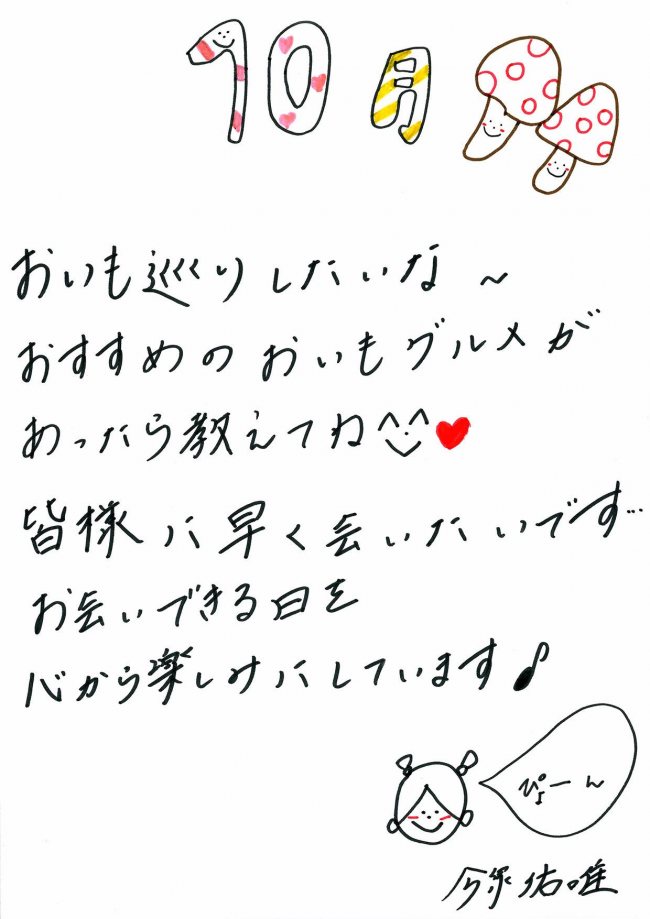 10月
おいも巡りしたいな~
おすすめのおいもグルメが
あったら教えてね
皆様に早く会いたいです…
お会いできる日を
心から楽しみにしています♪
ぴょーん
今泉佑唯